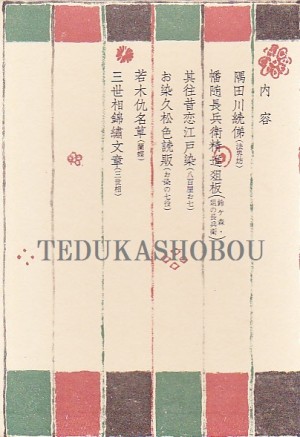 内容
隅田川続俤(法界坊)
幡随長兵衛精進俎板(鈴ヶ森・俎の長兵衛)
其往昔恋江戸染(八百屋お七)
お染久松色読販(お染の七役)
若木仇名草(蘭蝶)
三世相錦繍文章(三世相)
TEDUKASHOBOU